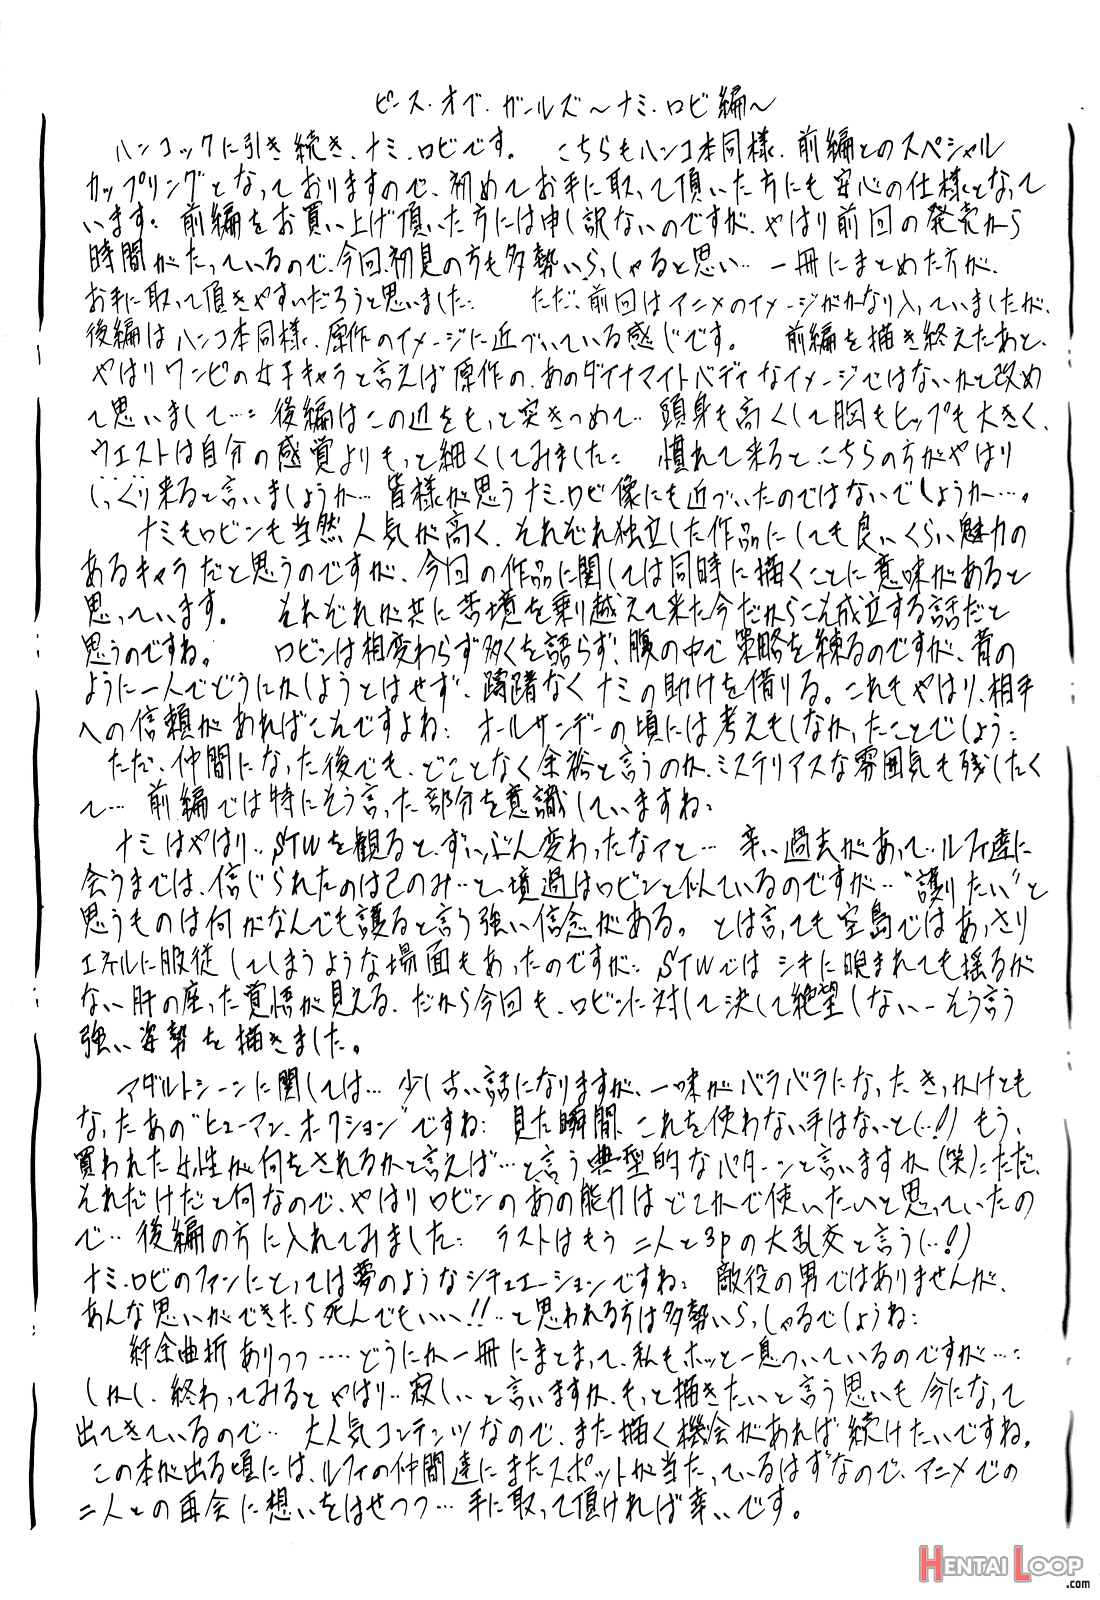 ピース・オブ・ガールズ～ナミ・ロビ編～
ハンコックに引き続き、ナミ・ロビです。 こちらもハンコ本同様、前編とのスペシャル
カップリングとなっておりますので、初めてお手に取って頂いた方にも安心の仕様となって
います。 前編をお買い上げ頂いた方には申し訳ないのですが、やはり前回の発売から
時間がたっているので、今回、初見の方も多勢いらっしゃると思い… 一冊にまとめた方が、
お手に取って頂きやすいだろうと思いました。 ただ、前回はアニメのイメージがかなり入っていましたが、
後編はハンコ本同様、原作のイメージに近づいている感じです。 前編を描き終えたあと、
やはりワンピの女子キャラと言えば原作の、あのダイナマイトバディなイメージではないかと改め
て思いまして…: 後編はこの辺をもっと突きつめて… 頭身も高くして胸もヒップも大きく、
ウエストは自分の感覚よりもっと細くしてみました: 慣れて来ると、こちらの方がやはり
しっくり来ると言いましょうか… 皆様が思うナミ・ロビ像にも近づいたのではないでしょうか…。
ナミもロビンも当然人気が高く、それぞれ独立した作品にしても良いくらい魅力の
あるキャラだと思うのですが、今回の作品に関しては同時に描くことに意味があると
思っています。 それぞれが共に苦境を乗り越えて来た今だからこそ成立する話だと
思うのですね。 ロビンは相変わらず多くを語らず、腹の中で策略を練るのですが、昔の
ように一人でどうにかしようとはせず、躊躇なくナミの助けを借りる。これもやはり、相手
への信頼があればこそですよね: オールサンデーの頃には考えもしなかったことでしょう:
ただ、仲間になった後でも、どことなく余裕と言うのか、ミステリアスな雰囲気も残したく
て… 前編では特にそう言った部分を意識していますね:
ナミはやはり‥STWを観ると、ずいぶん変わったなァと… 辛い過去があって‥ルフィ達に
会うまでは、信じられたのは己のみ…と、境遇はロビンと似ているのですが…“護りたい”と
思うものは何がなんでも護ると言う強い信念がある。 とは言っても空島ではあっさり
エネルに服従してしまうような場面もあったのですが: STWではシキに睨まれても揺るが
ない肝の座った覚悟が見える。だから今回も、ロビンに対して決して絶望しない―そう言う
強い姿勢を描きました。
アダルトシーンに関しては… 少し古い話になりますが、一味がバラバラになったきっかけとも
なったあの“ヒューマン・オークション”ですね: 見た瞬間、これを使わない手はないと(…!) もう、
買われた女性が何をされるかと言えば…と言う典型的なパターンと言いますか(笑): ただ、
それだけだと何なので、やはりロビンのあの能力はどこかで使いたいと思っていたの
で‥後編の方に入れてみました: ラストはもう二人と3Pの大乱交と言う(…!)
ナミ・ロビのファンにとっては夢のようなシチュエーションですね: 敵役の男ではありませんが、
あんな思いができたら死んでもいい!!‥と思われる方は多勢いらっしゃるでしょうね:
紆余曲折ありつつ…‥どうにか一冊にまとまって、私もホッと一息ついているのですが…:
しかし、終わってみるとやはり‥寂しいと言いますか、もっと描きたいと言う思いも今になって
出てきているので‥ 大人気コンテンツなので、また描く機会があれば続けたいですね。
この本が出る頃には、ルフィの仲間達にまたスポットが当たっているはずなので、アニメでの
二人との再会に想いをはせつつ… 手に取って頂ければ幸いです。
HENTAI LOOP
.com